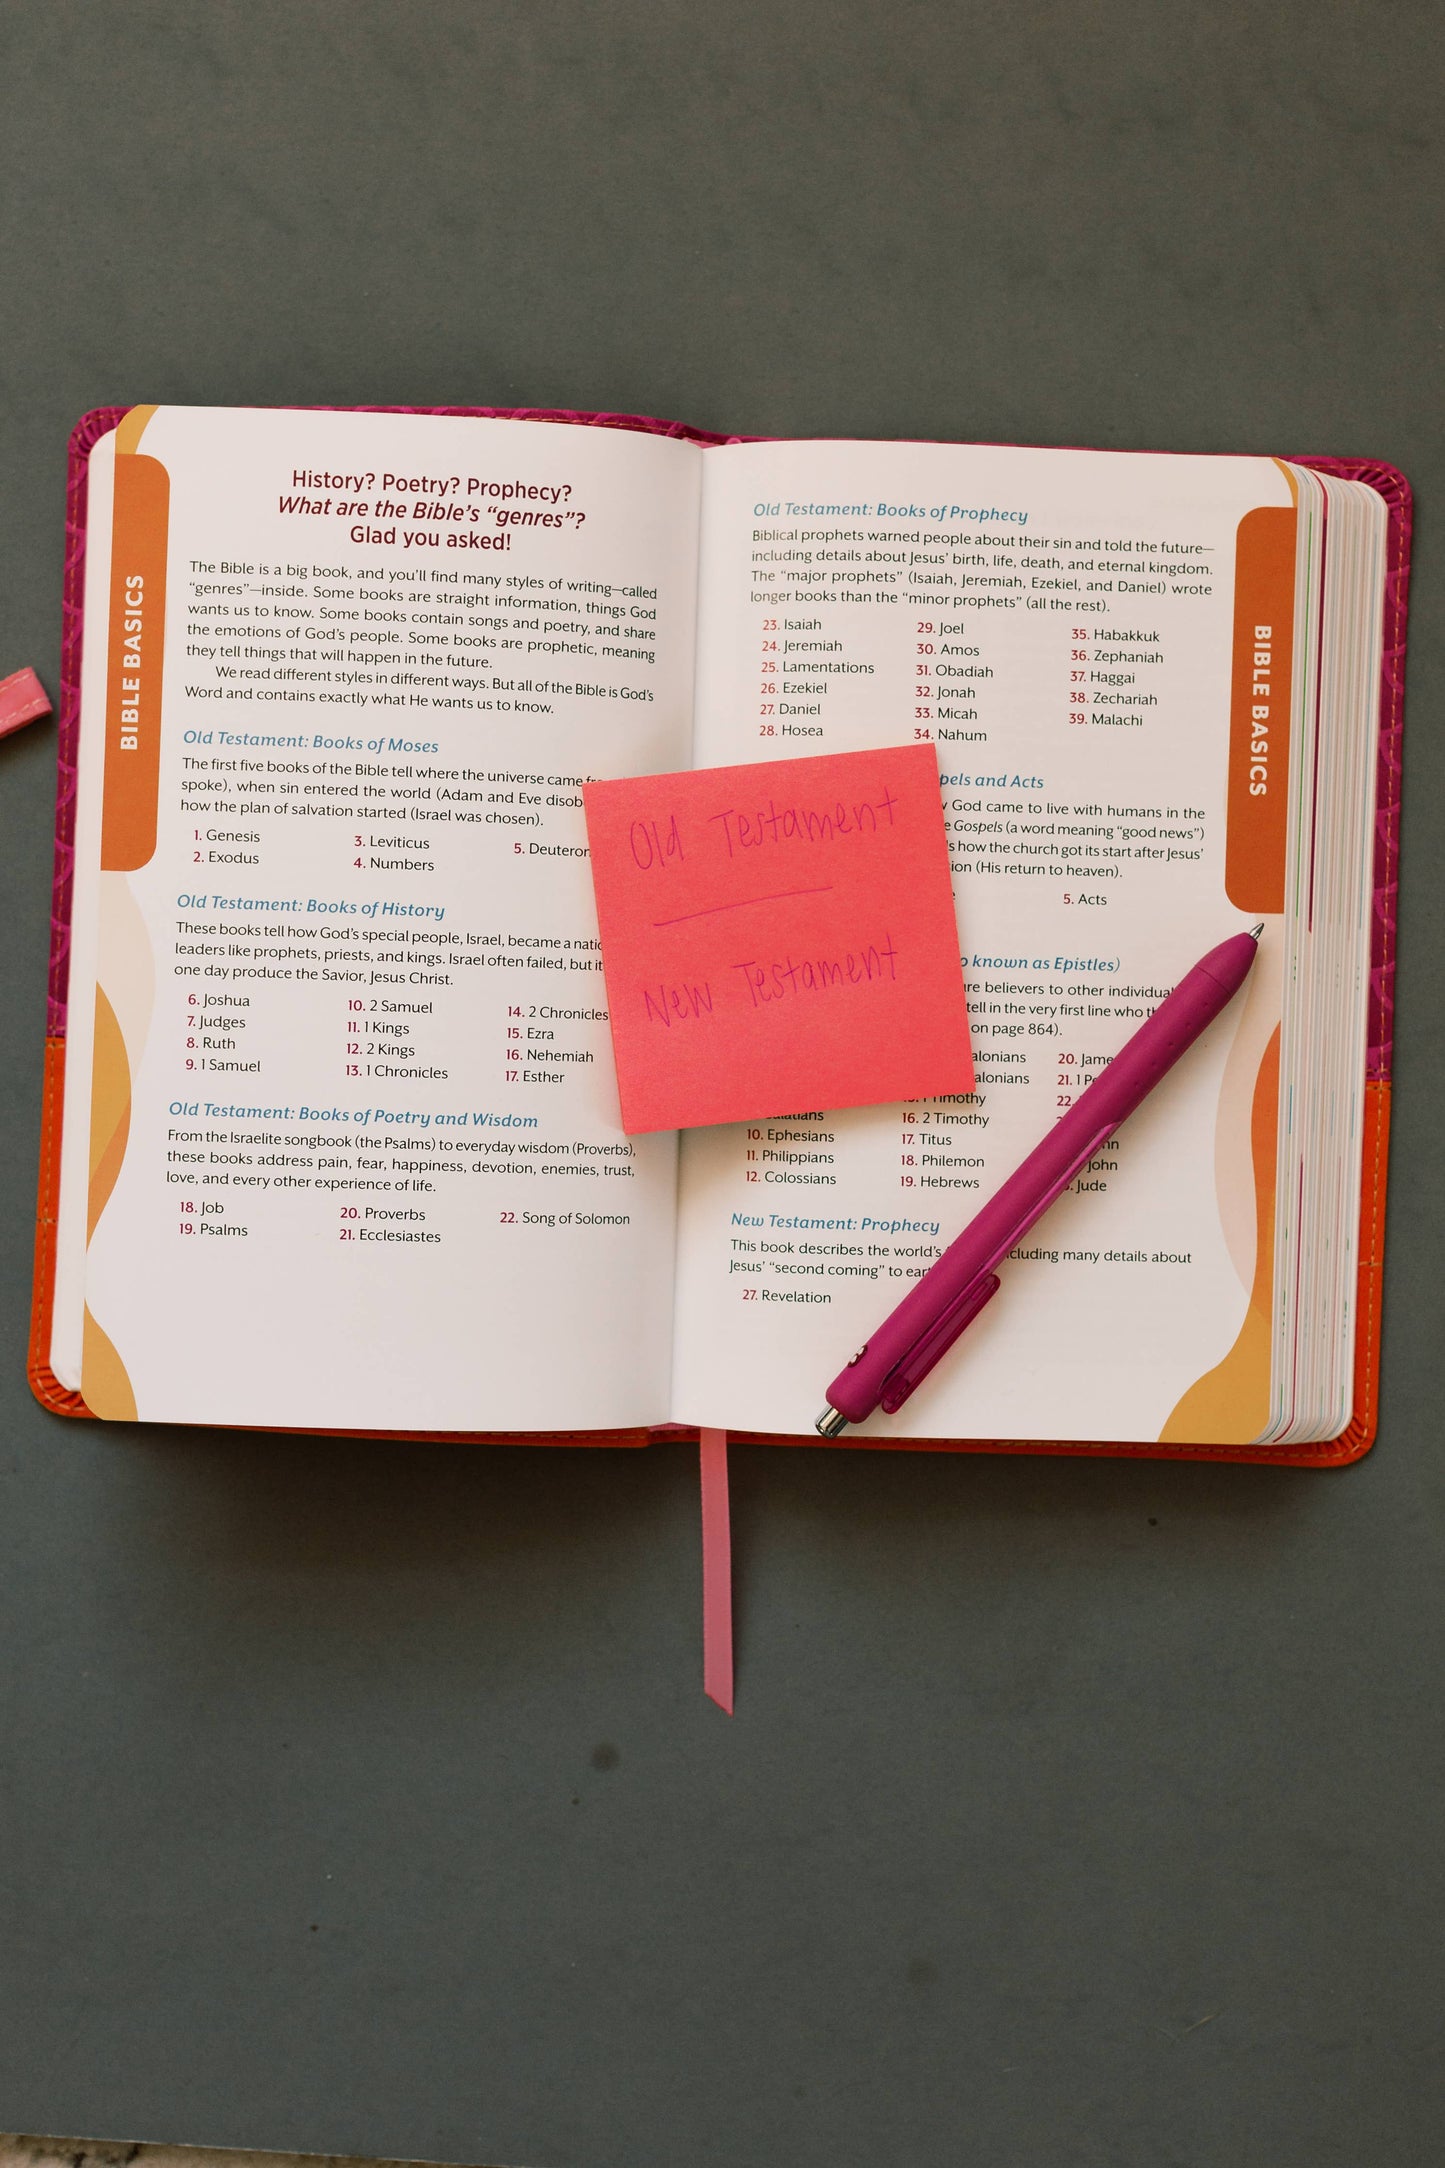 BIBLE BASICS
History? Poetry? Prophecy?
What are the Bible's “genres”?
Glad you asked!
The Bible is a big book, and you'll find many styles of writing—called
“genres”—inside. Some books are straight information, things God
wants us to know. Some books contain songs and poetry, and share
the emotions of God's people. Some books are prophetic, meaning
they tell things that will happen in the future.
We read different styles in different ways. But all of the Bible is God's
Word and contains exactly what He wants us to know.
Old Testament: Books of Moses
The first five books of the Bible tell where the universe came
spoke), when sin entered the world (Adam and Eve
how the plan of salvation started (Israel was chosen).
1. Genesis 3. Leviticus 5.
2. Exodus 4. Numbers
Old Testament: Books of History
These books tell how God's special people, Israel, became a
leaders like prophets, priests, and kings. Israel often failed, but it
one day produce the Savior, Jesus Christ.
6. Joshua 10. 2 Samuel 14. 2 Chronicles
7. Judges 11. 1 Kings 15. Ezra
8. Ruth 12. 2 Kings 16. Nehemiah
9. 1 Samuel 13. 1 Chronicles 17. Esther
Old Testament: Books of Poetry and Wisdom
From the Israelite songbook (the Psalms) to everyday wisdom (Proverbs),
these books address pain, fear, happiness, devotion, enemies, trust,
love, and every other experience of life.
18. Job 20. Proverbs 22. Song of Solomon
19. Psalms 21. Ecclesiastes
Old Testament
New Testament
Old Testament: Books of Prophecy
Biblical prophets warned people about their sin and told the future—
including details about Jesus' birth, life, death, and eternal kingdom.
The “major prophets” (Isaiah, Jeremiah, Ezekiel, and Daniel) wrote
longer books than the “minor prophets” (all the rest).
23. Isaiah 29. Joel 35. Habakkuk
24. Jeremiah 30. Amos 36. Zephaniah
25. Lamentations 31. Obadiah 37. Haggai
26. Ezekiel 32. Jonah 38. Zechariah
27. Daniel 33. Micah 39. Malachi
28. Hosea 34. Nahum
and Acts
God came to live with humans in the
Gospels (a word meaning “good news”)
how the church got its start after Jesus'
(His return to heaven).
5. Acts
known as Epistles)
believers to other
tell in the very first line who
on page 864).
20.
21. 1
22.
10. Ephesians 16. 2 Timothy
11. Philippians 17. Titus
12. Colossians 18. Philemon John
19. Hebrews Jude
New Testament: Prophecy
This book describes the world's many details about
Jesus' “second coming” to
27. Revelation
BIBLE BASICS